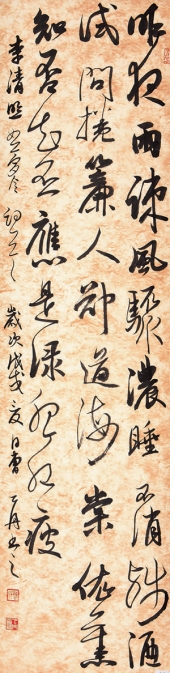 昨夜雨疎風驟濃睡不消残酒
試問捲簾人却道海棠依舊
知否知否應是绿肥红瘦
李清照如夢令詞一之 歲次戊戌夏日曹